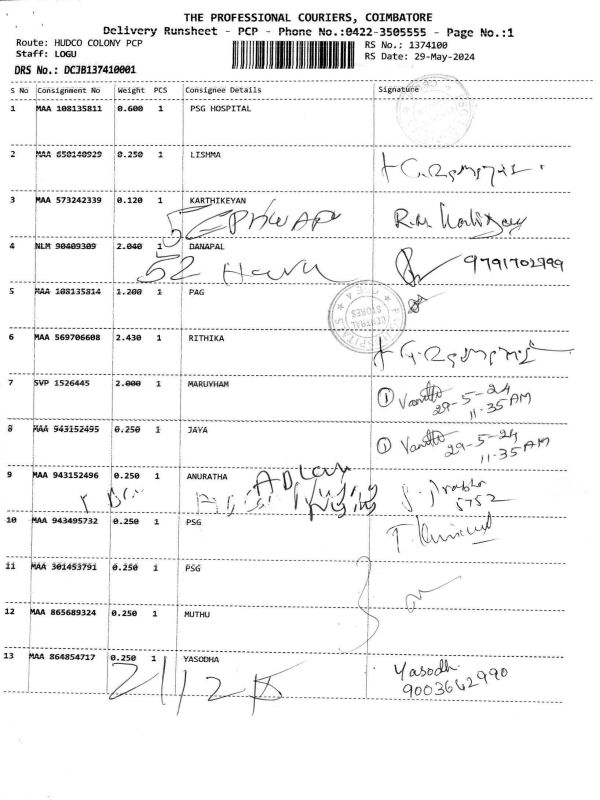 THE PROFESSIONAL COURIERS, COIMBATORE
Delivery Runsheet - PCP - Phone No.:0422-3505555 - Page No.:1
Route: HUDCO COLONY PCP
RS No.: 1374100
Staff: LOGU
RS Date: 29-May-2024
DRS No.: DCJB137410001
S No Consignment No Weight PCS Consignee Details Signature
1 MAA 108135811 0.600 1 PSG HOSPITAL
2 MAA 650140929 0.250 1 LISHMA
3 MAA 573242339 0.120 1 KARTHIKEYAN
4 NLM 90409309 2.040 1 DANAPAL
52
9791702999
5 MAA 108135814 1.200 1 PAG
CENTRAL STORES
6 MAA 569706608 2.430 1 RITHIKA
7 SVP 1526445 2.000 1 MARUYHAM
1 Vanitha 29-5-24
11.35 AM
8 MAA 943152495 0.250 1 JAYA
1 Vanitha 29-5-24
11.35 AM
9 MAA 943152496 0.250 1 ANURATHA
5752
10 MAA 943495732 0.250 1 PSG
11 MAA 301453791 0.250 1 PSG
12 MAA 865689324 0.250 1 MUTHU
13 MAA 864854717 0.250 1 YASODHA
Yasodh
9003642990